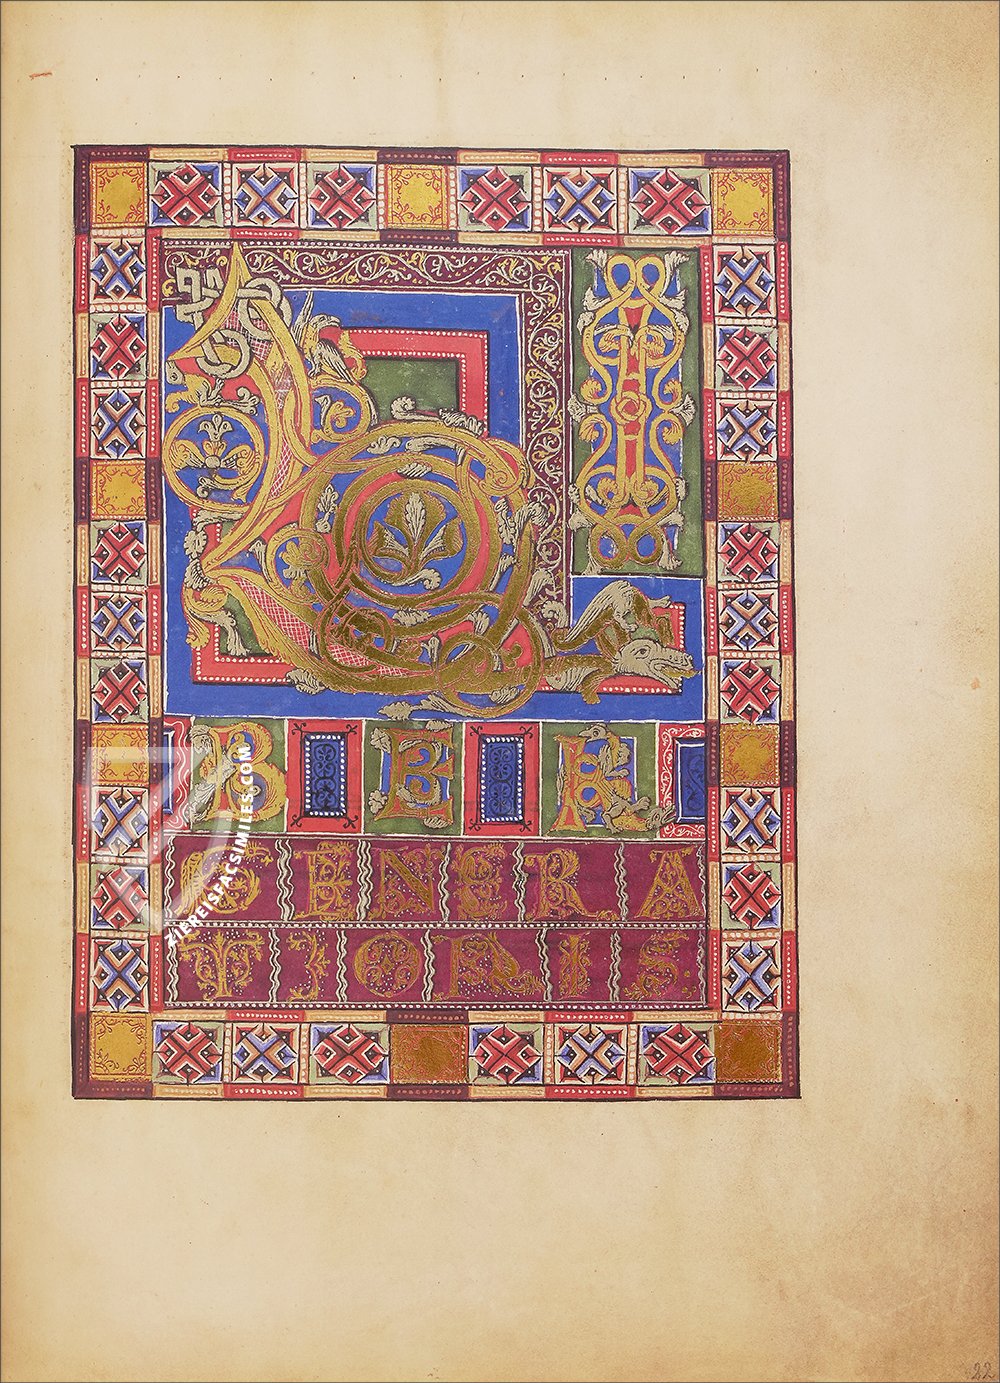 L I
B E R
GENERA
TIONIS.
ZIEREISFACSIMILES.COM
22